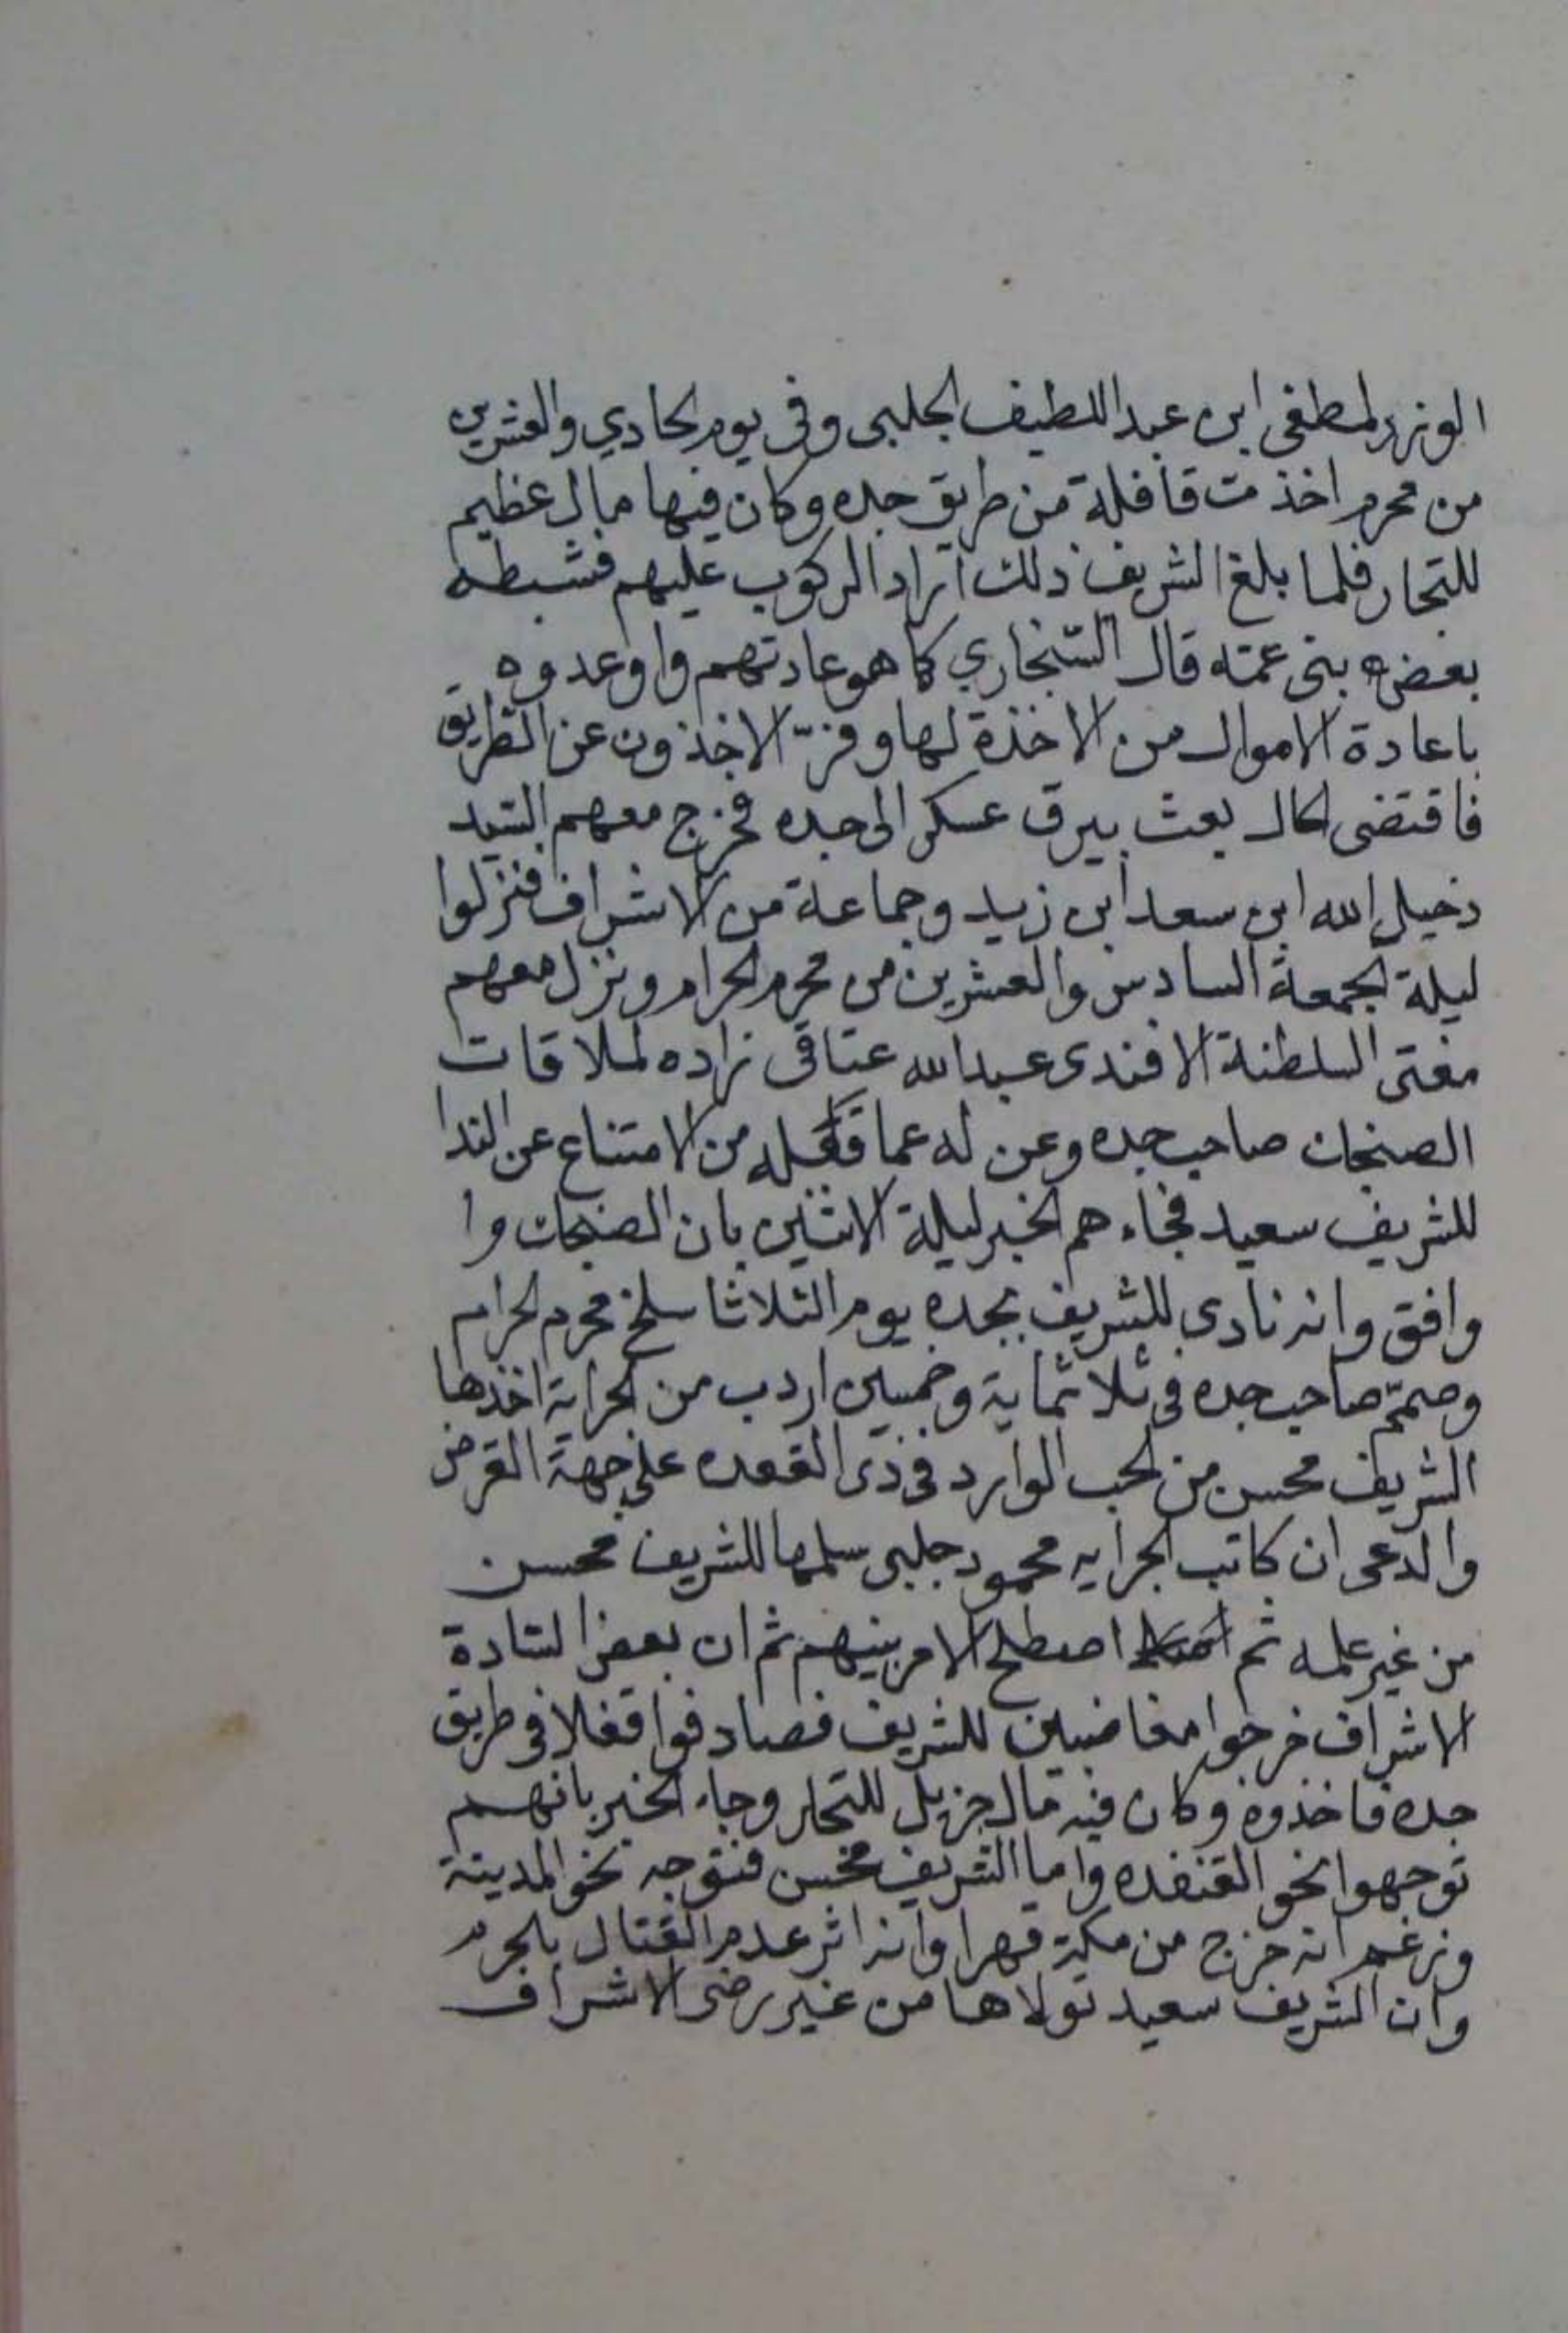 الوزير لمصطفى ابن عبد اللطيف الجلبى وفى يوم الحادي والعشرين
من محرم اخذ مت قافلة من طريق جده وكان فيها مال عظيم
للتجار فلما بلغ الشريف ذلك اراد الركوب عليهم فثبطه
بعض بنى عمه قال السنجاري كما هو عادتهم واوعدوه
باعادة الاموال من الاخذة لها وفرّ الاخذون عن الطريق
فاقتضى الحال بعث بيرق عسكر الى جده فخرج معهم السيد
دخيل الله ابن سعد ابن زيد وجماعة من الاشراف فنزلوا
ليلة الجمعة السادس والعشرين من محرم الحرام ونزل معهم
مفتى السلطنة الافندى عبد الله عتاقى زاده لملاقات
الصنجان صاحب جده وعن له عما فعله من الامتناع عن الندا
للشريف سعيد فجاءهم الخبر ليلة الاثنين بان الصنجان وا
وافق وانه نادى للشريف بجده يوم الثلاثا سلخ محرم الحرام
وصمّم صاحب جده فى ثلاثماية وخمسين اردب من الجراية اخذها
الشريف محسن من الحب الوارد فى ذى القعده على جهة القرض
والدعى ان كاتب الجرايه محمود جلبى سلمها للشريف محسن
من غير علمه ثم اصطلح الامر بينهم ثم ان بعض السادة
الاشراف خرجوا مغاضبين للشريف فصادفوا قفلا فى طريق
جده فاخذوه وكان فيه مال جزيل للتجار وجاء الخبر بانهم
توجهوا نحو القنفده واما الشريف محسن فتوجه نحو المدينة
وزعم انه خرج من مكة قهرا وانه اثر عدم القتال بالحرم
وان الشريف سعيد تولاها من غير رضى الاشراف